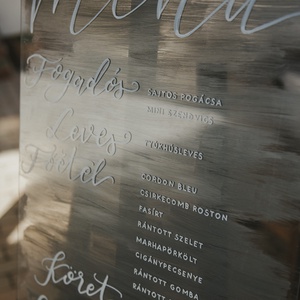 menü
Fogadós
SAJTOS POGÁCSA
MINI SZENDVICS
Leves
TYÚKHÚSLEVES
Főétel
CORDON BLEU
CSIRKECOMB ROSTON
FASÍRT
RÁNTOTT SZELET
MARHAPÖRKÖLT
CIGÁNYPECSENYE
RÁNTOTT GOMBA
RÁNTOTT
Köret